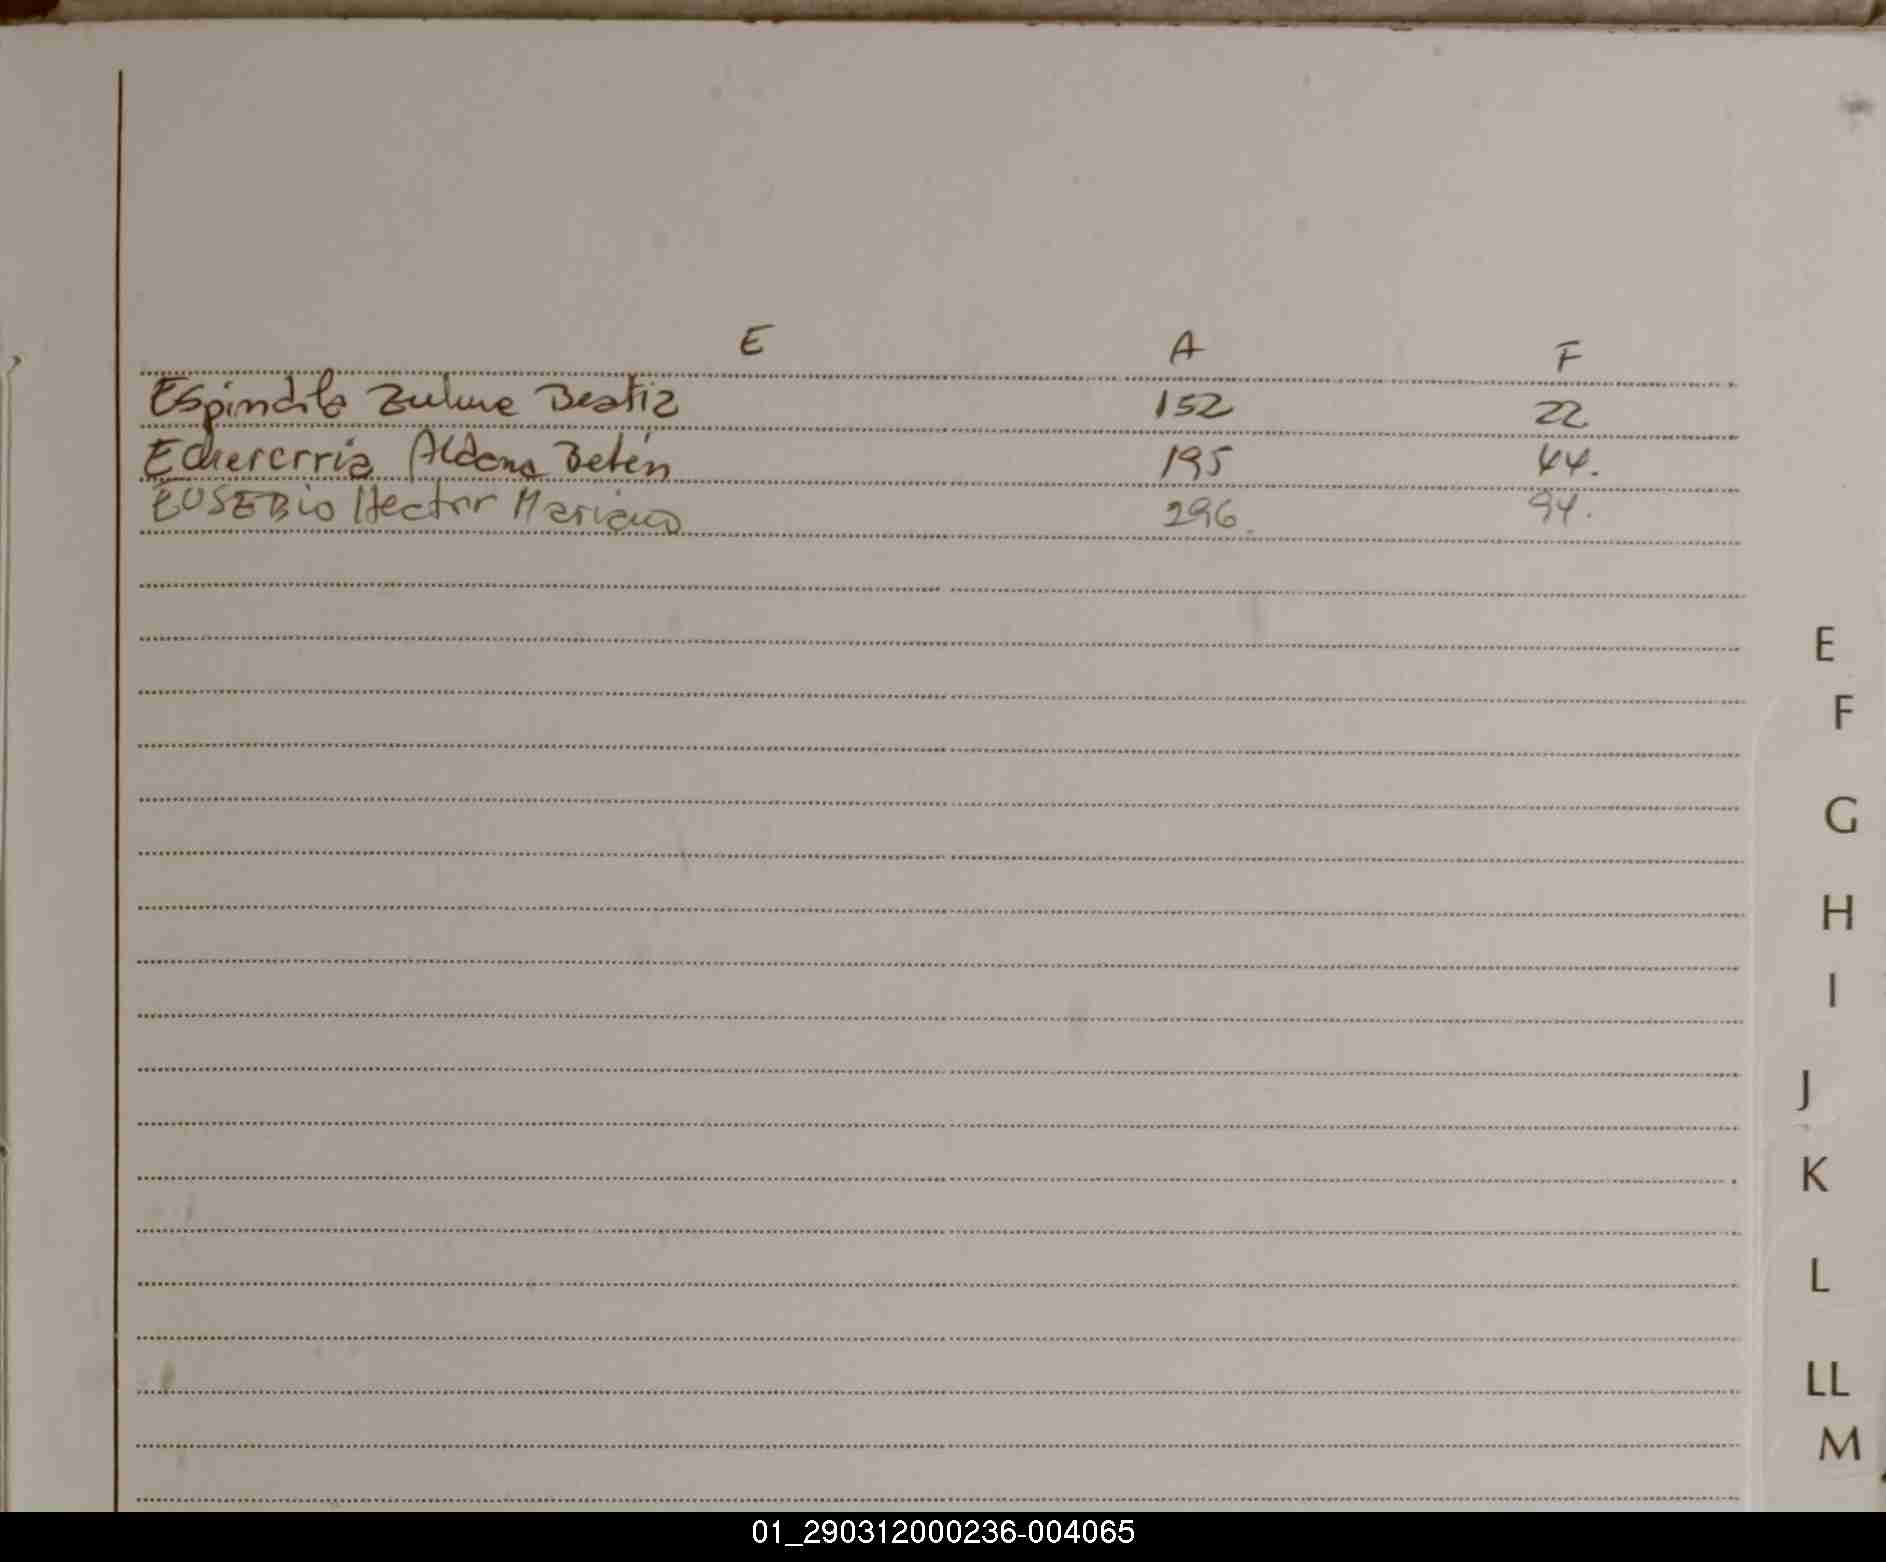 E A F
Espindila Zulme Beatiz 152 22
Echeverria Aldana Belén 195 44.
EUSEBio Hector Mariano 296. 94.
E
F
G
H
I
J
K
L
LL
M
01_290312000236-004065